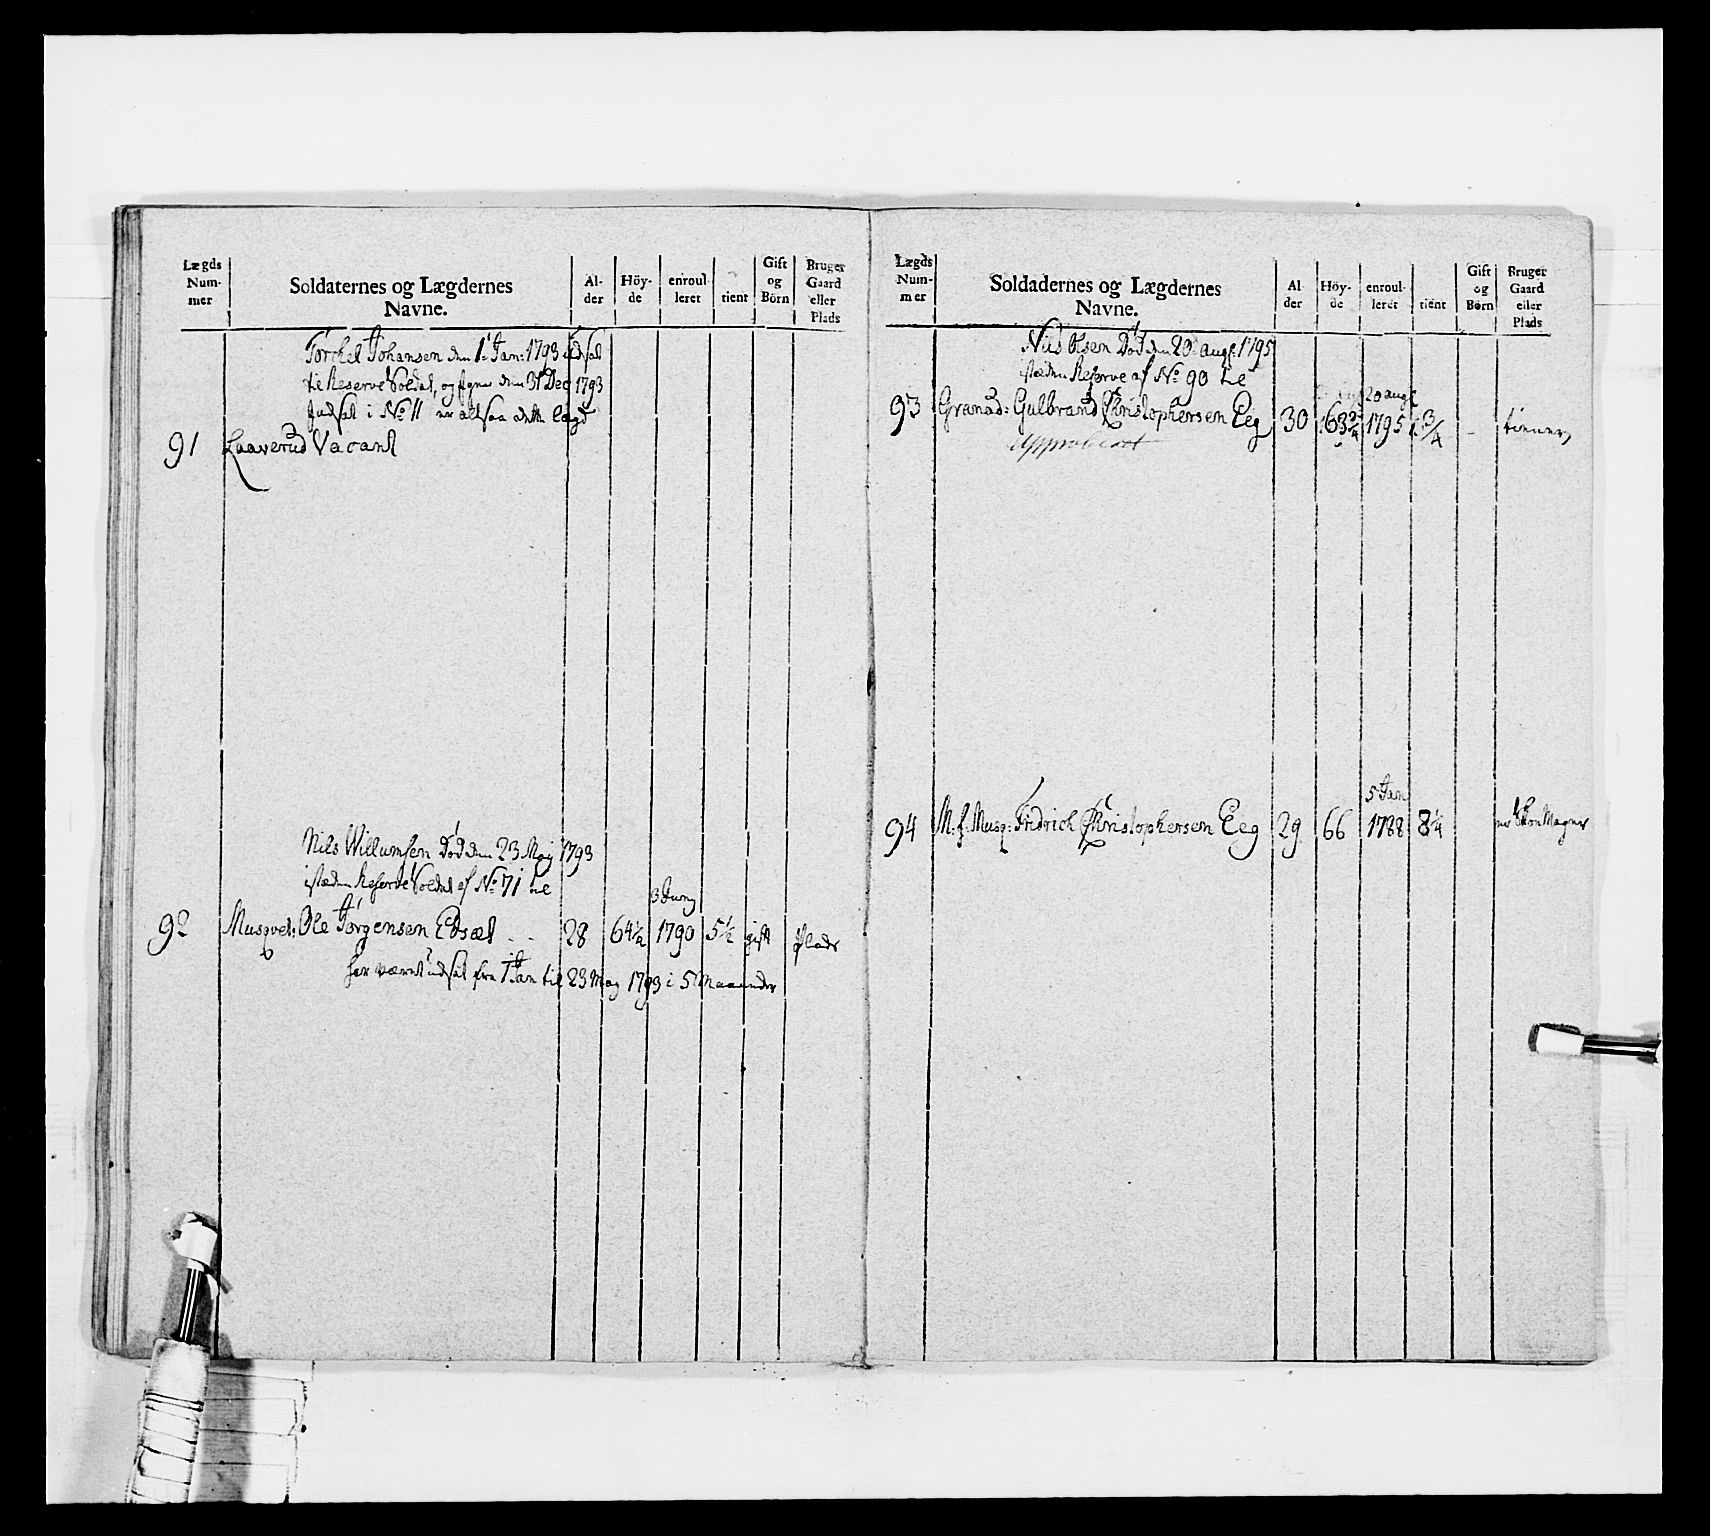 Lægds Num- mer
Soldaternes og Lægdernes Navne.
Al- der
Höy- de
enroul- leret
tient
Gift og Börn
Bruger Gaard eller Plads
Torchel Johansen den 1te Jan: 1793 udsat
til Reserve Soldat, og igien den 31 Dec 1793
Indsat i No 11 er altsaa dette lægd
91 Laaverud Vacant
Nils Willumsen Död den 23 May 1793
istæden Reserve Soldat af No 71 til
3 Juny
92 Musqvet: Ole Jörgensen Edsæt 28 64 1/4 1790 5 1/2 gift Plads
har været udsat fra 1 Jan til 23 May 1793 i 5 Maaneder
Lægds Num- mer
Soldadernes og Lægdernes Navne.
Al- der
Höy- de
enroul- leret
tient
Gift og Börn
Bruger Gaard eller Plads
Nils Olsen Död den 20 augt: 1795
istæden Reserve af No 90 til
20 augt
93 Granad: Gulbrand Christophersen Eeg 30 63 3/4 1795 3/4 - tienner
Approberet
5 Jan
94 M: f: Musq: Fridrich Christophersen Eeg 29 66 1788 8 1/4